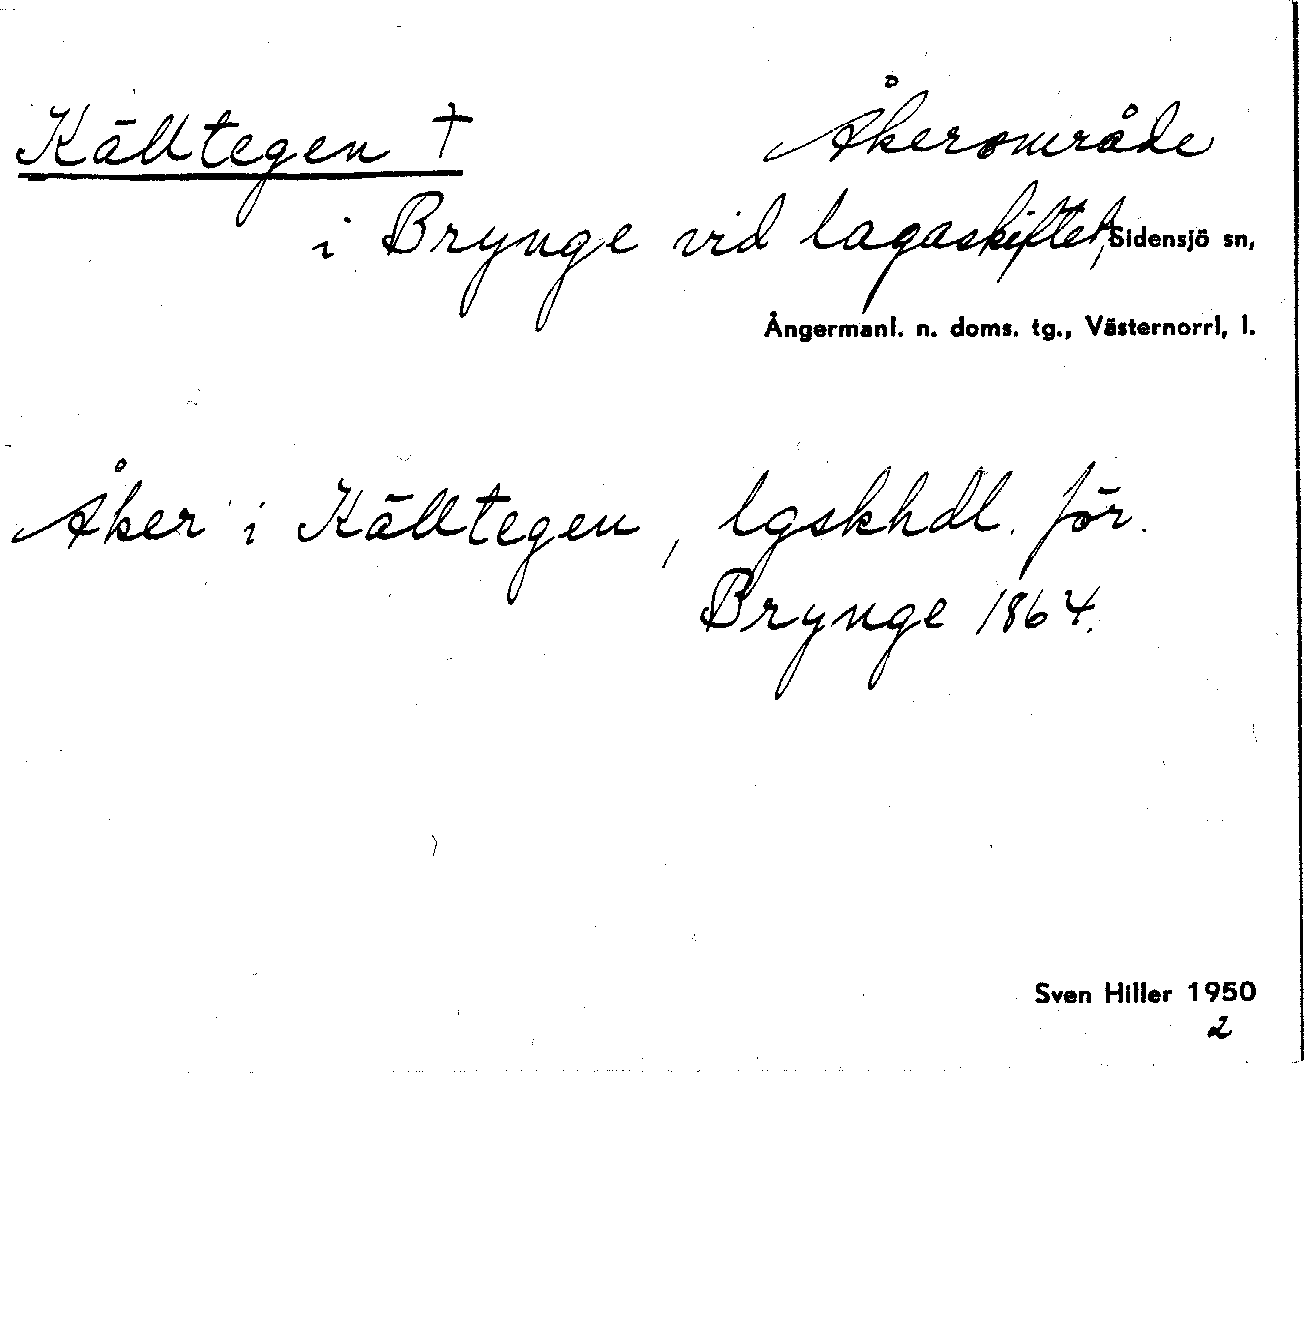 Källtegen † Åkerområde
i Brynge vid lagaskiftet, Sidensjö sn,
Ångermanl. n. doms. tg., Västernorrl, l.
Åker i Källtegen, lgskhdl. för.
Brynge 1864.
Sven Hiller 1950
2